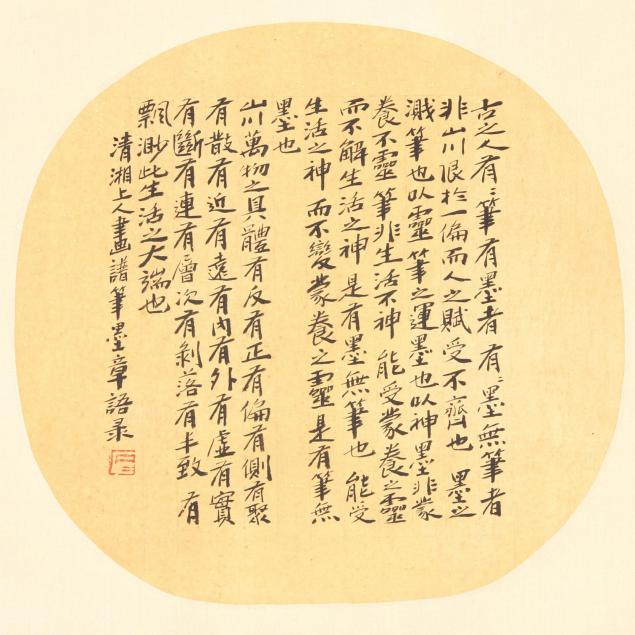 古之人有〻筆有墨者有〻墨無筆者
非山川限於一偏而人之賦受不齊也墨之
濺筆也以靈筆之運墨也以神墨非蒙
養不靈筆非生活不神能受蒙養之靈
而不解生活之神是有墨無筆也能受
生活之神而不變蒙養之靈是有筆無
墨也
山川萬物之具體有反有正有偏有側有聚
有散有近有遠有内有外有虛有實
有斷有連有層次有剝落有丰致有
飄渺此生活之大端也
清湘上人畫譜筆墨章語录